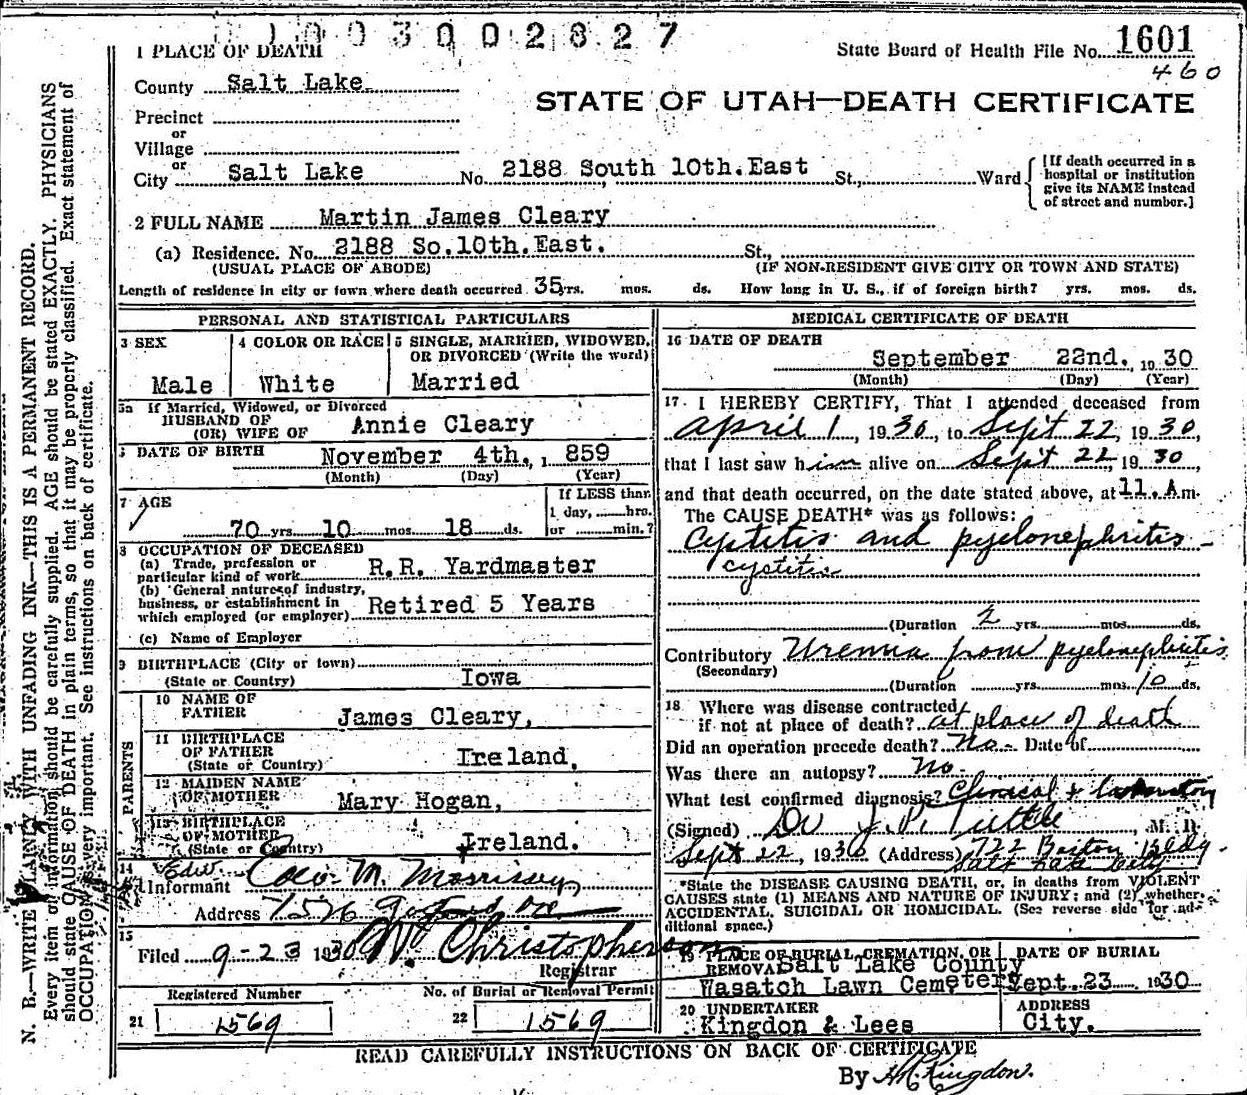 1003002827
1 PLACE OF DEATH
State Board of Health File No. 1601
460
County Salt Lake
STATE OF UTAH—DEATH CERTIFICATE
Precinct
or
Village
or
City Salt Lake No. 2188 South 10th.East St., Ward
[If death occurred in a
hospital or institution
give its NAME instead
of street and number.]
2 FULL NAME Martin James Cleary
(a) Residence. No. 2188 So.10th.East. St.,
(USUAL PLACE OF ABODE) (IF NON-RESIDENT GIVE CITY OR TOWN AND STATE)
Length of residence in city or town where death occurred 35 yrs. mos. ds. How long in U. S., if of foreign birth? yrs. mos. ds.
PERSONAL AND STATISTICAL PARTICULARS
3 SEX
Male
4 COLOR OR RACE
White
5 SINGLE, MARRIED, WIDOWED,
OR DIVORCED (Write the word)
Married
5a If Married, Widowed, or Divorced
HUSBAND OF
(OR) WIFE OF Annie Cleary
DATE OF BIRTH November 4th., 1 859
(Month) (Day) (Year)
7 AGE
70 yrs 10 mos 18 ds.
If LESS than
1 day, hrs.
or min.?
8 OCCUPATION OF DECEASED
(a) Trade, profession or
particular kind of work R.R. Yardmaster
(b) General nature of industry,
business, or establishment in
which employed (or employer) Retired 5 Years
(c) Name of Employer
9 BIRTHPLACE (City or town)
(State or Country) Iowa
PARENTS
10 NAME OF
FATHER James Cleary,
11 BIRTHPLACE
OF FATHER
(State or Country) Ireland,
12 MAIDEN NAME
OF MOTHER Mary Hogan,
13 BIRTHPLACE
OF MOTHER
(State or Country) Ireland.
14 Edw.
Informant M. Morrissey
Address
15
Filed 9-23 1930 Christopherson
Registrar
Registered Number
21 1569
No. of Burial or Removal Permit
22 1569
MEDICAL CERTIFICATE OF DEATH
16 DATE OF DEATH
September 22nd. 1930
(Month) (Day) (Year)
17 I HEREBY CERTIFY, That I attended deceased from
April 1, 1930, to Sept 22, 1930,
that I last saw him alive on Sept 22, 1930,
and that death occurred, on the date stated above, at 11.Am.
The CAUSE DEATH* was as follows:
Cystitis and pyelonephritis -
cystitis
(Duration 2 yrs. mos. ds.
Contributory Uremia from pyelonephritis
(Secondary)
(Duration yrs. mos. 10 ds.
18 Where was disease contracted
if not at place of death? at place of death
Did an operation precede death? No - Date of
Was there an autopsy? No.
What test confirmed diagnosis? Clinical & laboratory
(Signed) Dr J.P. Tuttle, M. D.
Sept 22, 1930 (Address) 722 Boston Bldg.
Salt Lake City
*State the DISEASE CAUSING DEATH, or, in deaths from VIOLENT
CAUSES state (1) MEANS AND NATURE OF INJURY; and (2) whether
ACCIDENTAL, SUICIDAL OR HOMICIDAL. (See reverse side for ad-
ditional space.)
19 PLACE OF BURIAL, CREMATION, OR
REMOVAL Salt Lake County
Wasatch Lawn Cemetery
DATE OF BURIAL
Sept. 23 1930
20 UNDERTAKER
Kingdon & Lees
ADDRESS
City.
READ CAREFULLY INSTRUCTIONS ON BACK OF CERTIFICATE
By Kingdon.
N. B.—WRITE PLAINLY WITH UNFADING INK—THIS IS A PERMANENT RECORD.
Every item of information should be carefully supplied. AGE should be stated EXACTLY. PHYSICIANS
should state CAUSE OF DEATH in plain terms, so that it may be properly classified. Exact statement of
OCCUPATION is very important. See instructions on back of certificate.